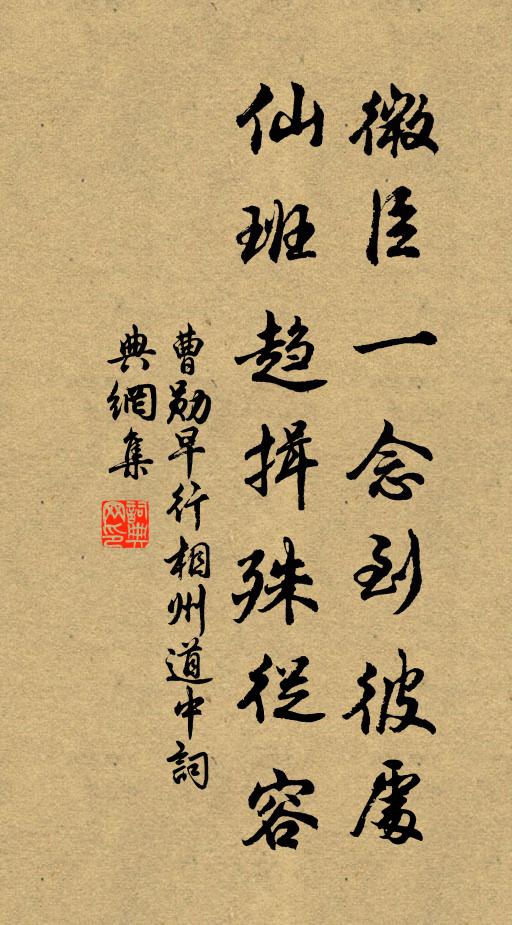 微臣一念到彼處
仙班趨揖殊從容
曹勛早行相州道中詞
典網集
詞典網印